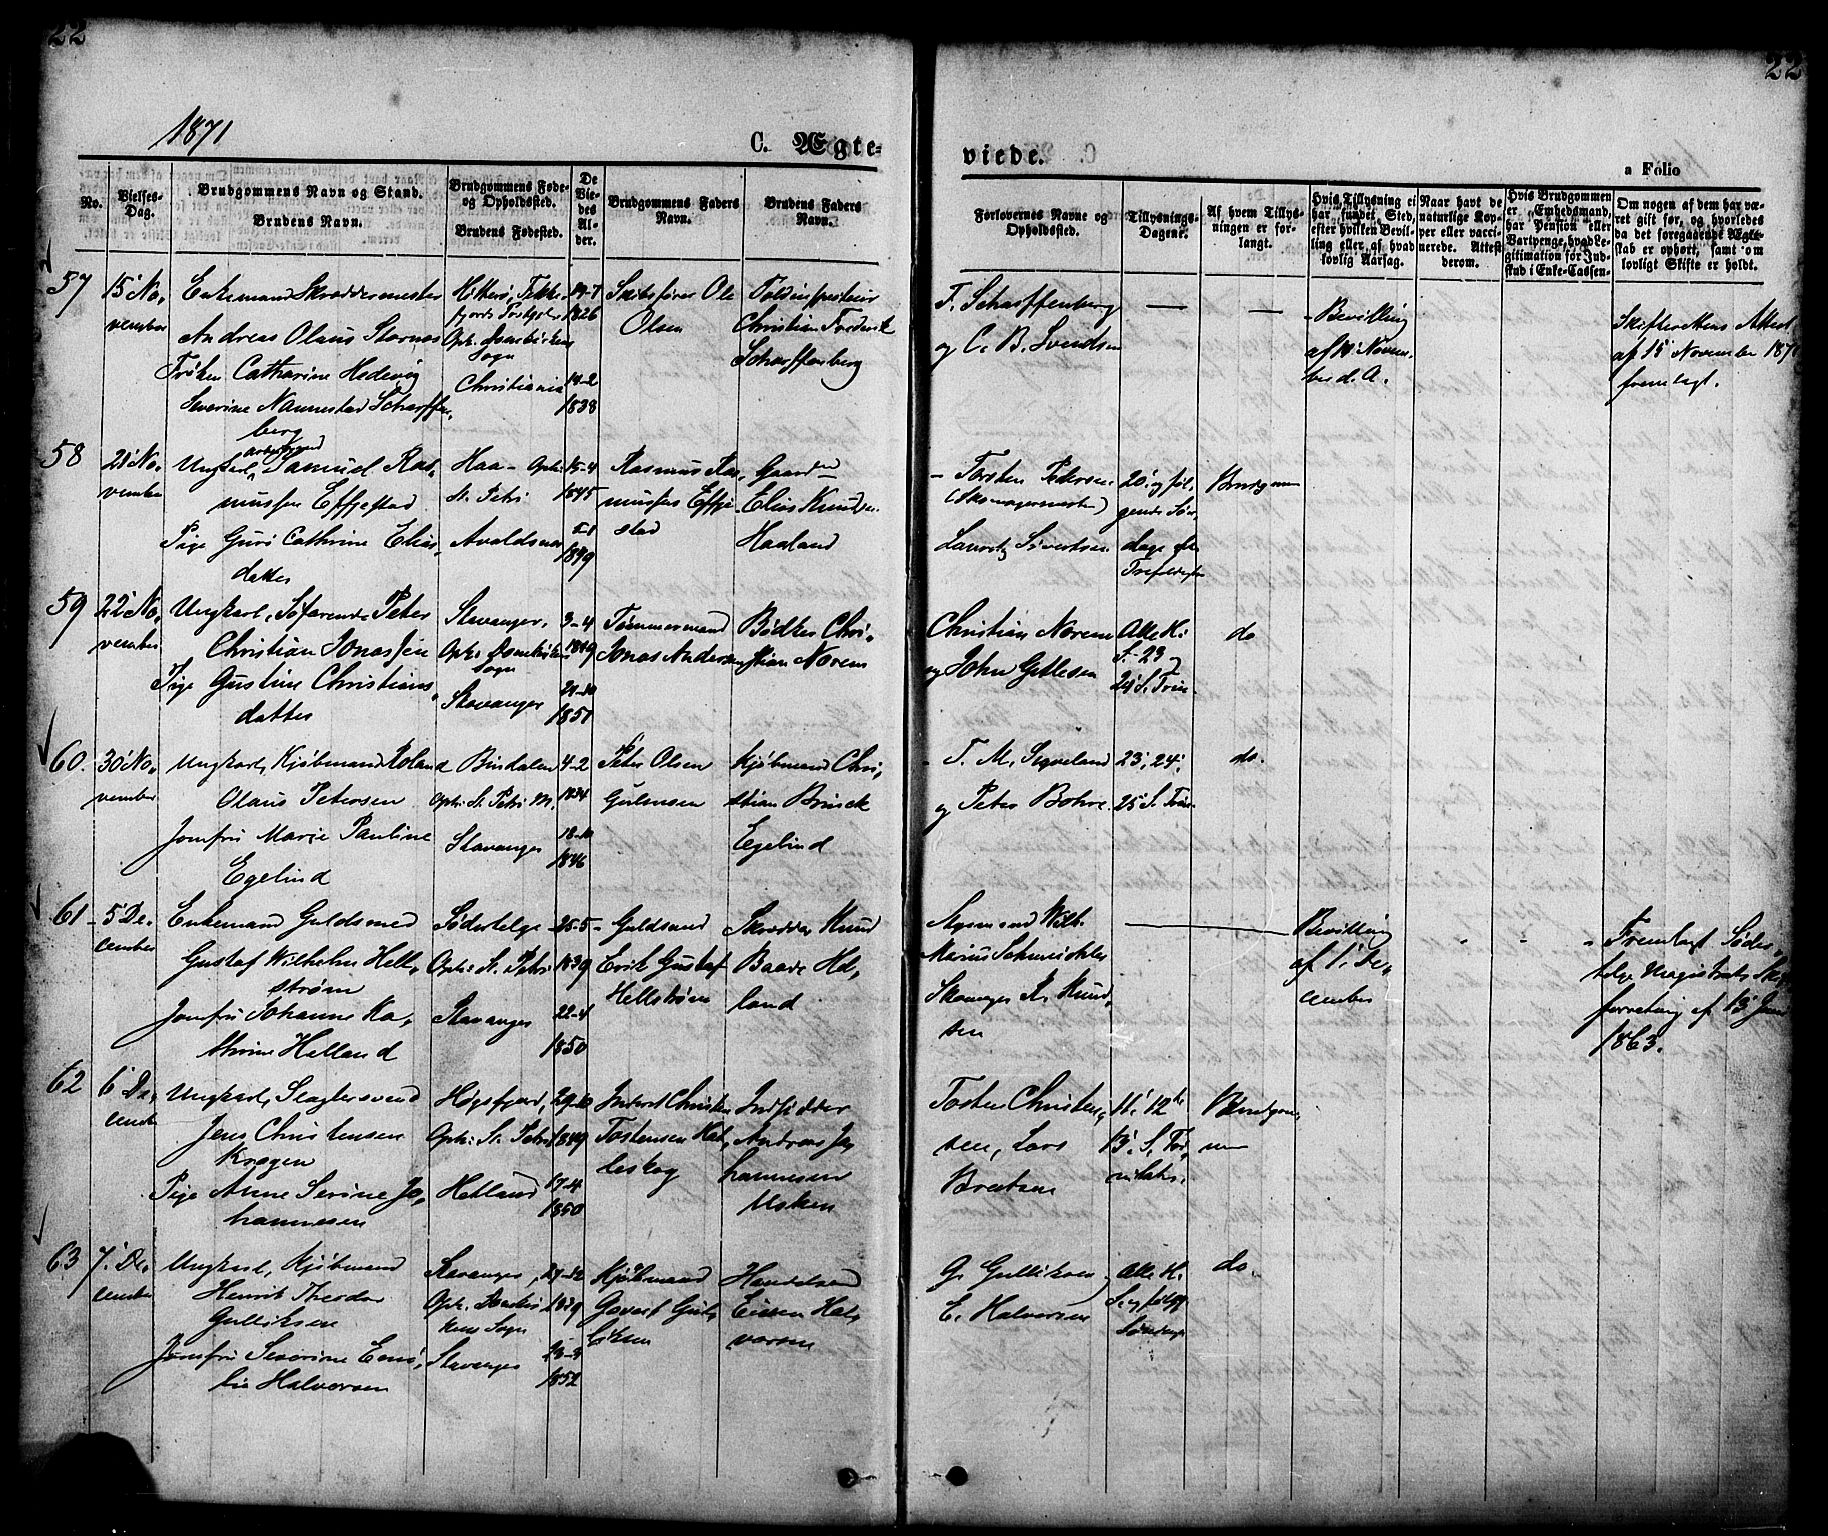 22
22
1871
C. Ægte-
viede.
a Folio
No.
Vielses-
Dag.
Brudgommens Navn og Stand.
Brudens Navn.
Brudgommens Føde-
og Opholdssted.
Brudens Fødested.
De
Vie-
des
Al-
der.
Brudgommens Faders
Navn.
Brudens Faders
Navn.
Forlovernes Navne og
Opholdssted.
Tillysnings-
Dagene.
Af hvem Tillys-
ningen er for-
langt.
Hvis Tillysning ei
har fundet Sted,
efter hvilken Bevil-
ling eller af hvad
lovlig Aarsag.
Naar havt de
naturlige Kop-
per eller vacci-
nerede. Attest
derom.
Hvis Brudgommen
er Embedsmand,
har Pension eller
Vartpenge, hvad Le-
gitimation for Ind-
skud i Enke-Cassen-
Om nogen af dem har væ-
ret gift før, og hvorledes
da det foregaaende Ægte-
skab er ophørt, samt om
lovligt Skifte er holdt.
57
15 No,
vember
Enkemand Skræddermester
Andreas Olaus Stornæs
Frøken Catharine Hedevig
Severine Nannestad Scharffen,
berg
Hitterø,
Oph:
Sogn
Christiania
14-7
1826
14-2
1838
Ole
Olsen
Christian Frederik
Scharffenberg
T. Scharffenberg
og C. B. Svendsen
—
—
Bevilling
af 14 Novem,
ber d. A.
Skifterettens Attest
af 15 November 1871
fremlagt.
58
21 No,
vember
arbeidsmand
Ungkarl, Samuel Ras,
mussen Effjestad
Pige Guri Cathrine Elias,
datter
Haa - Oph:
St. Petri
Avaldsnes
15-4
1845
1849
Rasmus Ras,
mussen Effje,
stad
Gaardmd
Elias Knudsen
Haaland
- Torsten Pedersen
(Skomagermester)
Lauritz Sivertsen
20 og føl,
gende Søn,
dage efter
Trefoldighed
Brudgommen
59
22 No,
vember
Ungkarl, Søfarende Peter
Christian Jonassen
Pige Gustine Christians,
datter
Stavanger,
Oph:
Sogn
Stavanger
3-4
1849
1851
Tømmermand
Jonas Andersen
Bødker Chri,
stian Norem
Christian Norem
og John Gitlesen
Alle H:
S. 23
24 S. Trin
do
60.
30 No,
vember
Ungkarl, Kjøbmand Roland
Olaus Petersen
Jomfru Marie Pauline
Egelind
Bindalen
Oph: St. Petri M.
Stavanger
4-2
1834
18-10
1846
Peter Olsen
Kjøbmand Chri,
stian Brinck
Egelind
- T. M. Sigveland
og Peter Bohre
23, 24,
25 S. Trin
do.
61
5 De,
cember
Enkemand Guldsmed
Gustaf Wilhelm Hell,
strøm
Jomfru Johanne Ka,
thrine Helland
Södertelge
Oph: St. Petri
Stavanger
25-5
1839
22-4
1850
Guldsmed
Erik Gustaf
Hellstrøm
Skrædder Knud
Baade Hel,
land
Styrmand Wilh.
Marius
Knud,
sen
Bevilling
af 1 De,
cember
" " "
Fremlagt Söder,
telge Magistrats Skif,
teforretning af 13 Juni
1863.
62
6 De,
cember
Ungkarl, Slagtersvend
Jens Christensen
Krogen
Pige Anne Serine Jo,
hannesen
Høgsfjord,
Oph: St. Petri
Hetland
29-10
1849
17-4
1850
Inderst Christen
Tostensen Hal,
leskog
Indsidder
Andreas Jo,
hannesen
Usken
Tosten Christen,
sen, Lars
Bertsen
11, 12te
13 S. Tri,
nitatis.
Brudgom,
men
63
7 De,
cember
Ungkarl, Kjøbmand
Henrik Theodor
Gulliksen
Jomfru Severine Emi,
lie Halvorsen
Stavanger,
Oph: Domkir,
kens Sogn
Stavanger
27-12
1852
Kjøbmand
Govert Gul,
liksen
Handelsmd
Hal,
vorsen
G. Gulliksen
E. Halvorsen
Alle H.
S. og følgd.
Søndage
do.